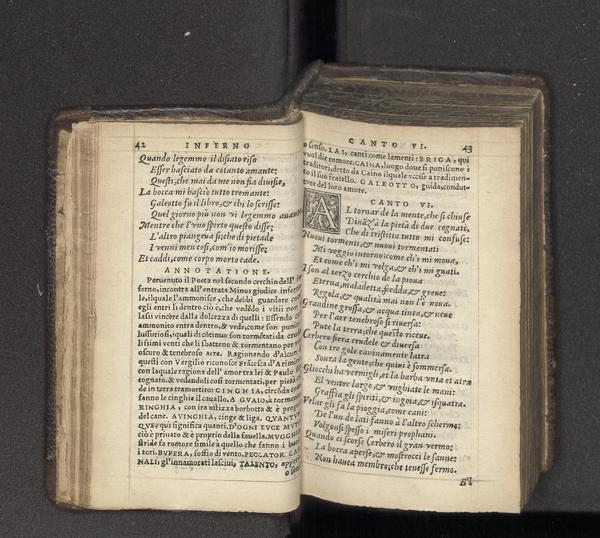 42 INFERNO
Quando legemmo il disiato riso
Esser basciato da cotanto amante:
Questi, che mai da me non fia diviso,
La bocca mi basciò tutto tremante:
Galeotto fu il libro, & chi lo scrisse:
Quel giorno più non vi legemmo auante
Mentre che l'vno spirto questo disse;
L'altro piangeua sì; che di pietade
I venni men così, com'io morisse;
Et caddi, come corpo morto cade.
ANNOTATIONE.
Peruenuto il Poeta nel secondo cerchio dell'
ferno, incontra all'entrata Minos giudice infer
le, il quale l'ammonisce, che debbi guardare co
egli entri lì dentro ciò e, che vedẽdo i vitii non
lassi vincere dalla dolcezza di quelli: Essendo
ammonito entra dentro, & vede, come son punit
lussuriosi, quali di cõtinuo son tormẽtati da cru
lissimi venti che li sbattono & tormentano per
oscuro & tenebroso aere. Ragionando d'alcun
quelli con Vergilio riconosce Frãcesca d'Arimi
con laquale ragiona dell'amor tra lei & Paulo
cognato. & vedendoli così tormentati, per pietà
de in terra tramortito: CINGHIA, circõda co
fanno le cinghie il cauallo. A GVAIO, a torme
RINGHIA, con ira ostizza borbotta & è prop
del cane. AVINGHIA, cinge & liga. QVANTVN
QVE, quì significa quanti. D'OGNI LVCE MVTO
ciò è priuato & è proprio della fauella. MVGGHIA
stride fa romore simile à quello che fanno i buoi
i tori. BVFERA, soffio di vento. PECCATOR CAR
NALI, gl'innamorati lasciui, TALENTO,
CANTO VI. 43
o senso. LAI, canti come lamenti: BRIGA, qui
vuol dir romore. CAINA, luogo doue si puniscono i
traditori, detto da Caino ilquale vccise a tradimen-
to il suo fratello. GALEOTTO, guida, condut-
tore del loro amore.
CANTO VI.
AL tornar de la mente, che si chiuse
Dinãzi a la pietà di due cognati,
Che di tristitia tutto mi confuse:
Nuoui tormenti, & nuoui tormentati
Mi veggio intorno: come ch'i mi moua,
Et come ch'i mi volga, & ch'i mi guati.
I son al terzo cerchio de la pioua
Eterna, maladetta, fredda, & greue:
Regola, & qualità mai non l'è noua.
Grandine grossa, & acqua tinta, & neue
Per l'aer tenebroso si riuersa:
Pute la terra; che questo riceue.
Cerbero fiera crudele & diuersa
Con tre gole caninamente latra
Soura la gente; che quiui è sommersa.
Gliocchi ha vermigli, et la barba vnta et atra
El ventre largo, & vnghiate le mani:
Graffia gli spiriti, & ingoia, & isquatra.
Vrlar gli fa la pioggia, come cani:
De l'un de lati fanno a l'altro schermo:
Volgonsi spesso i miseri prophani.
Quando ci scorse Cerbero il gran vermo:
La bocca aperse, & mostrocci le sanne:
Non hauea membro; che tenesse fermo.
E'l